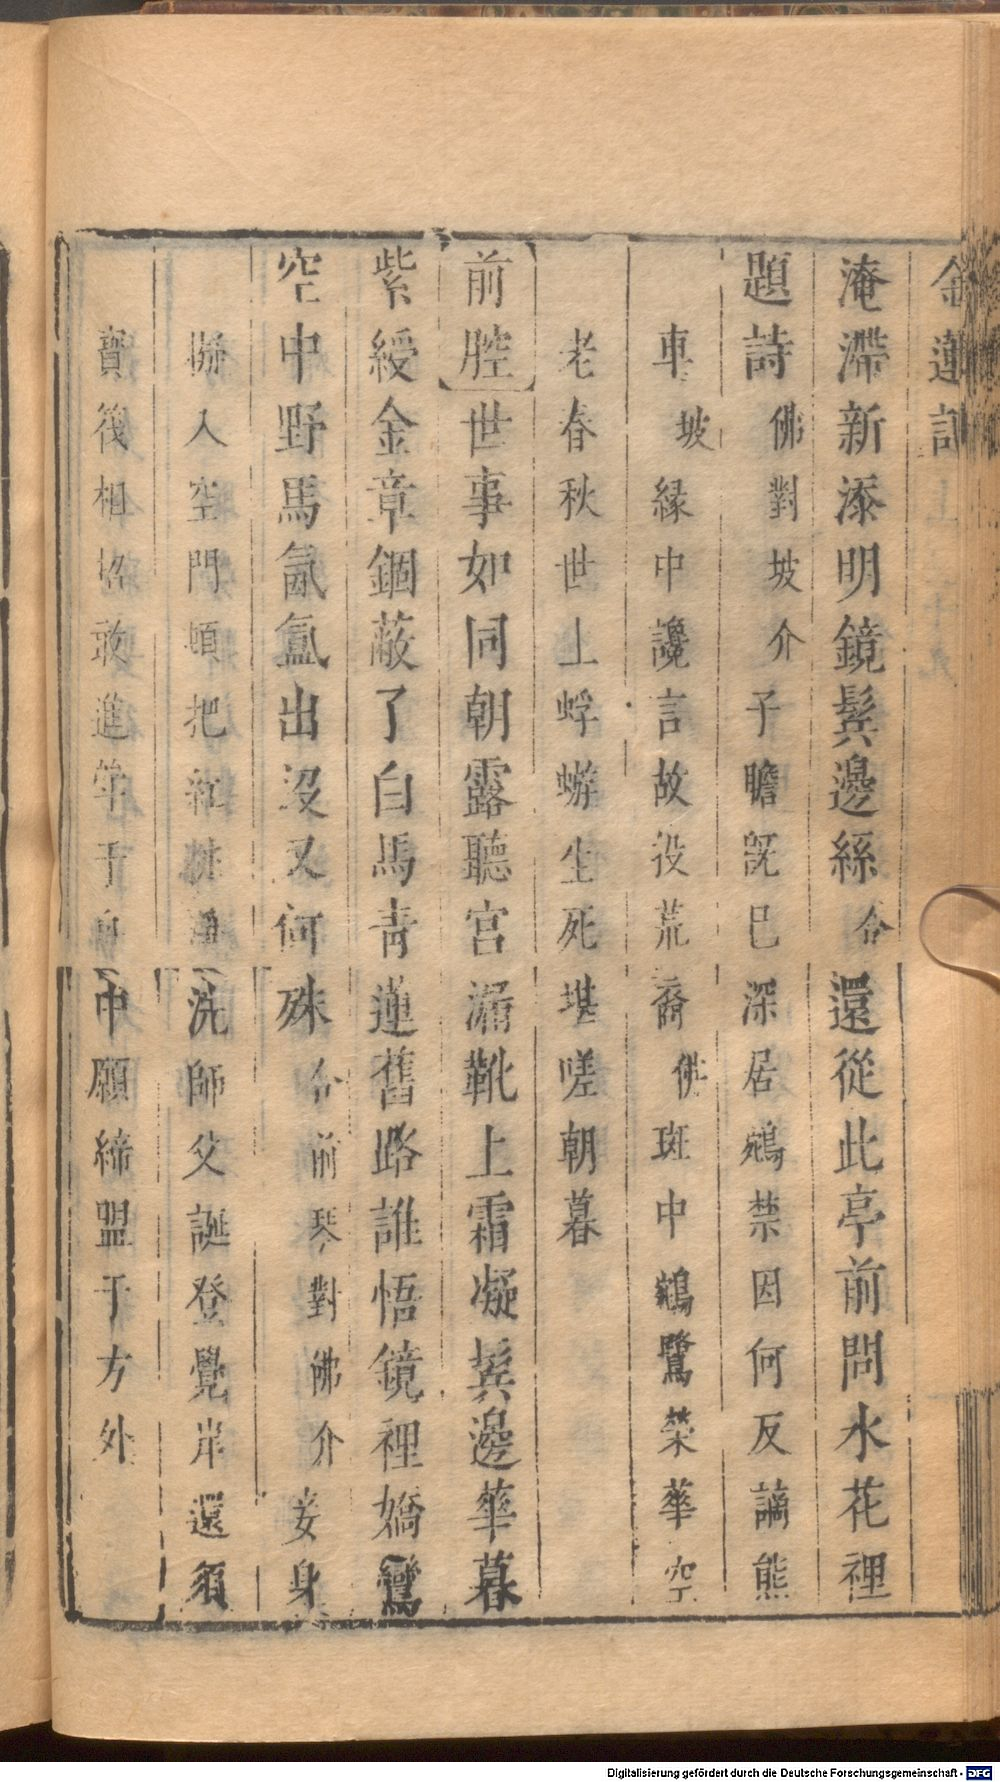 金蓮記
淹滯新添明鏡鬂邊絲合還從此亭前問水花裡
題詩佛對坡介子瞻既已深居鵷禁因何反謫熊
車坡緣中讒言故役荒裔佛斑中鵷鷺榮華空
老春秋世上蜉蝣生死堪嗟朝暮
前腔世事如同朝露聽宮漏靴上霜凝鬂邊華暮
紫綬金章錮蔽了白馬青蓮舊路誰悟鏡裡嬌鸞
空中野馬氤氳出沒又何殊合前琴對佛介妾身
擬入空門頓把紅 洗師父誕登覺岸還須
寶筏相 敢進 于 中願締盟于方外
Digitalisierung gefördert durch die Deutsche Forschungsgemeinschaft - DFG